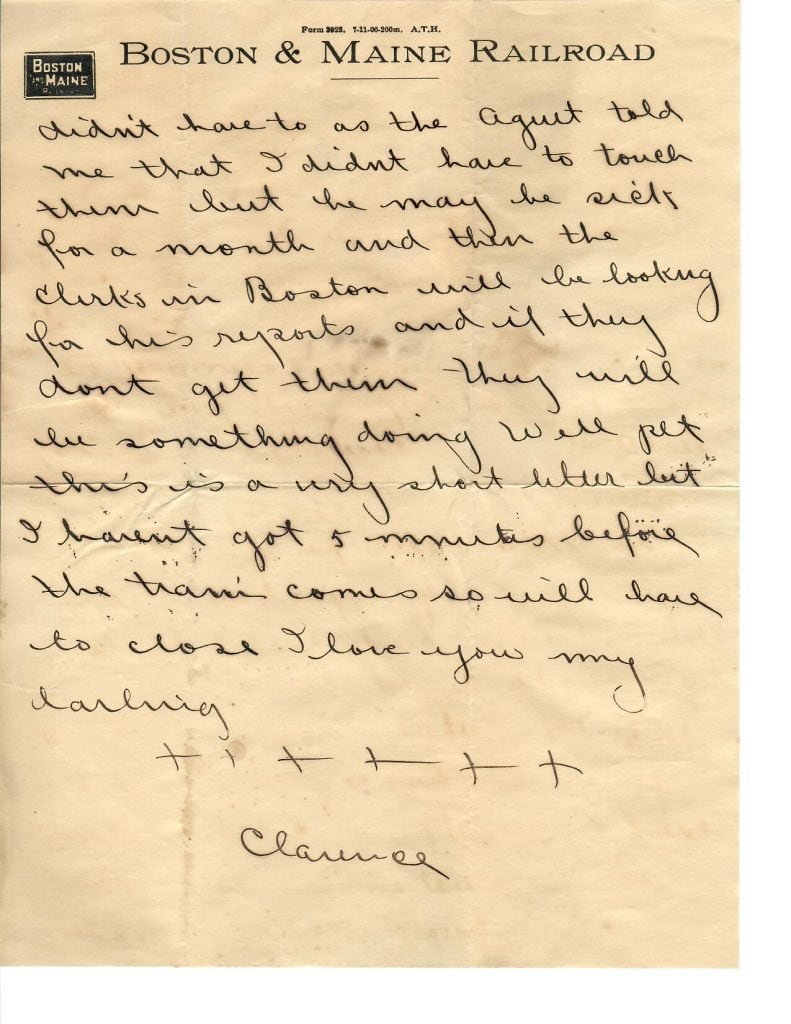 Form 3928. 7-11-06-200m. A.T.H.
BOSTON & MAINE RAILROAD
BOSTON
AND MAINE
didn't have to as the Agent told
me that I didnt have to touch
them but he may be sick
for a month and then the
clerks in Boston will be looking
for his reports and if they
dont get them they will
be something doing Well pet
this is a very short letter but
I havent got 5 minutes before
the train comes so will have
to close I love you my
darling
+ + + + + +
Clarence